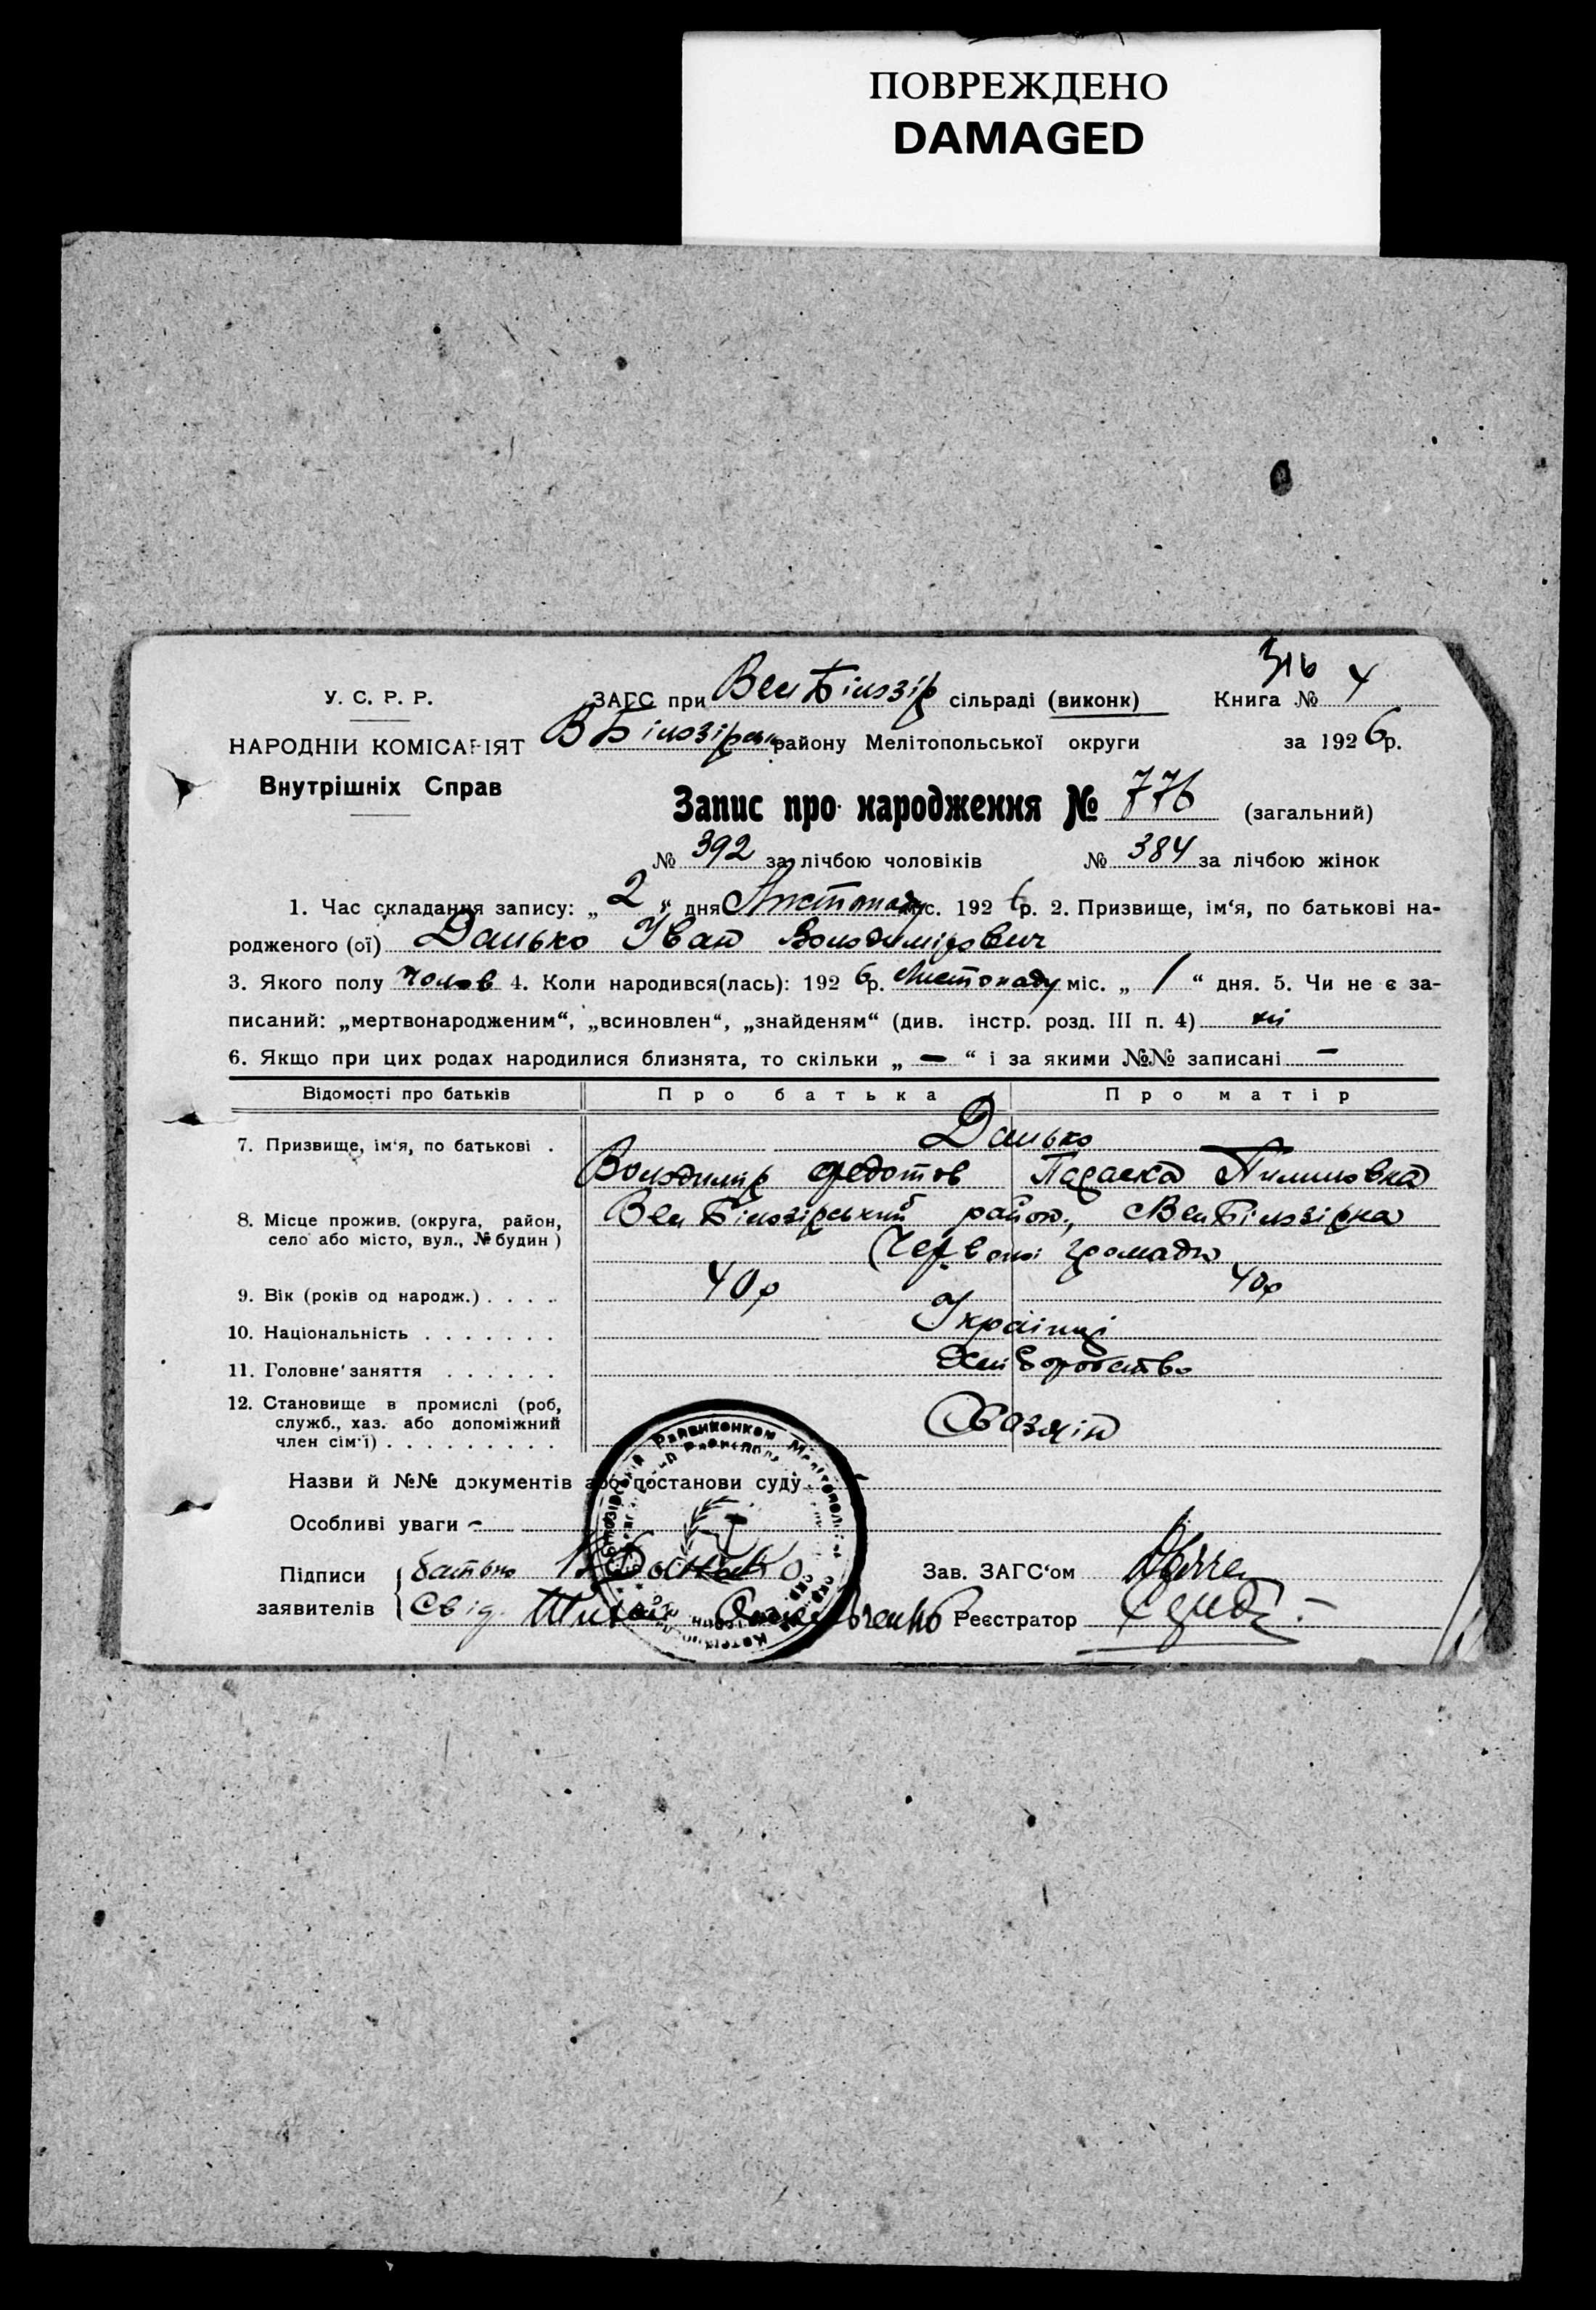 ПОВРЕЖДЕНО
DAMAGED
316
У. С. Р. Р.
ЗАГС при Вел Білозір сільраді (виконк) Книга № 4
НАРОДНІЙ КОМІСАРІЯТ
В Білозірськ району Мелітопольської округи за 1926р.
Внутрішніх Справ
Запис про народження № 776 (загальний)
№ 392 за лічбою чоловіків № 384 за лічбою жінок
1. Час складання запису: „2“ дня Листопаду міс. 1926р. 2. Призвище, ім‘я, по батькові на-
родженого (ої) Данько Іван Володимірович
3. Якого полу чолов 4. Коли народився(лась): 1926р. Листопаду міс. „1“ дня. 5. Чи не є за-
писаний: „мертвонародженим“, „всиновлен“, „знайденям“ (див. інстр. розд. III п. 4) ні
6. Якщо при цих родах народилися близнята, то скільки „ — “ і за якими №№ записані —
Відомості про батьків Про батька Про матір
7. Призвище, ім‘я, по батькові . Данько
Володимір Федотов Параска Пилиповна
8. Місце прожив. (округа, район, Вел Білозірський район, Вел Білозірка
село або місто, вул., № будин) Червоної громади
9. Вік (років од народж.) . . . . 40р 40р
10. Національність . . . . . . . Українці
11. Головне заняття . . . . . . Хліборобство
12. Становище в промислі (роб,
служб., хаз. або допоміжний Хазяїн
член сім‘ї) . . . . . . . . .
Назви й №№ документів або постанови суду —
Особливі уваги —
Підписи батько В Данько Зав. ЗАГС‘ом
заявителів Свід. Реєстратор